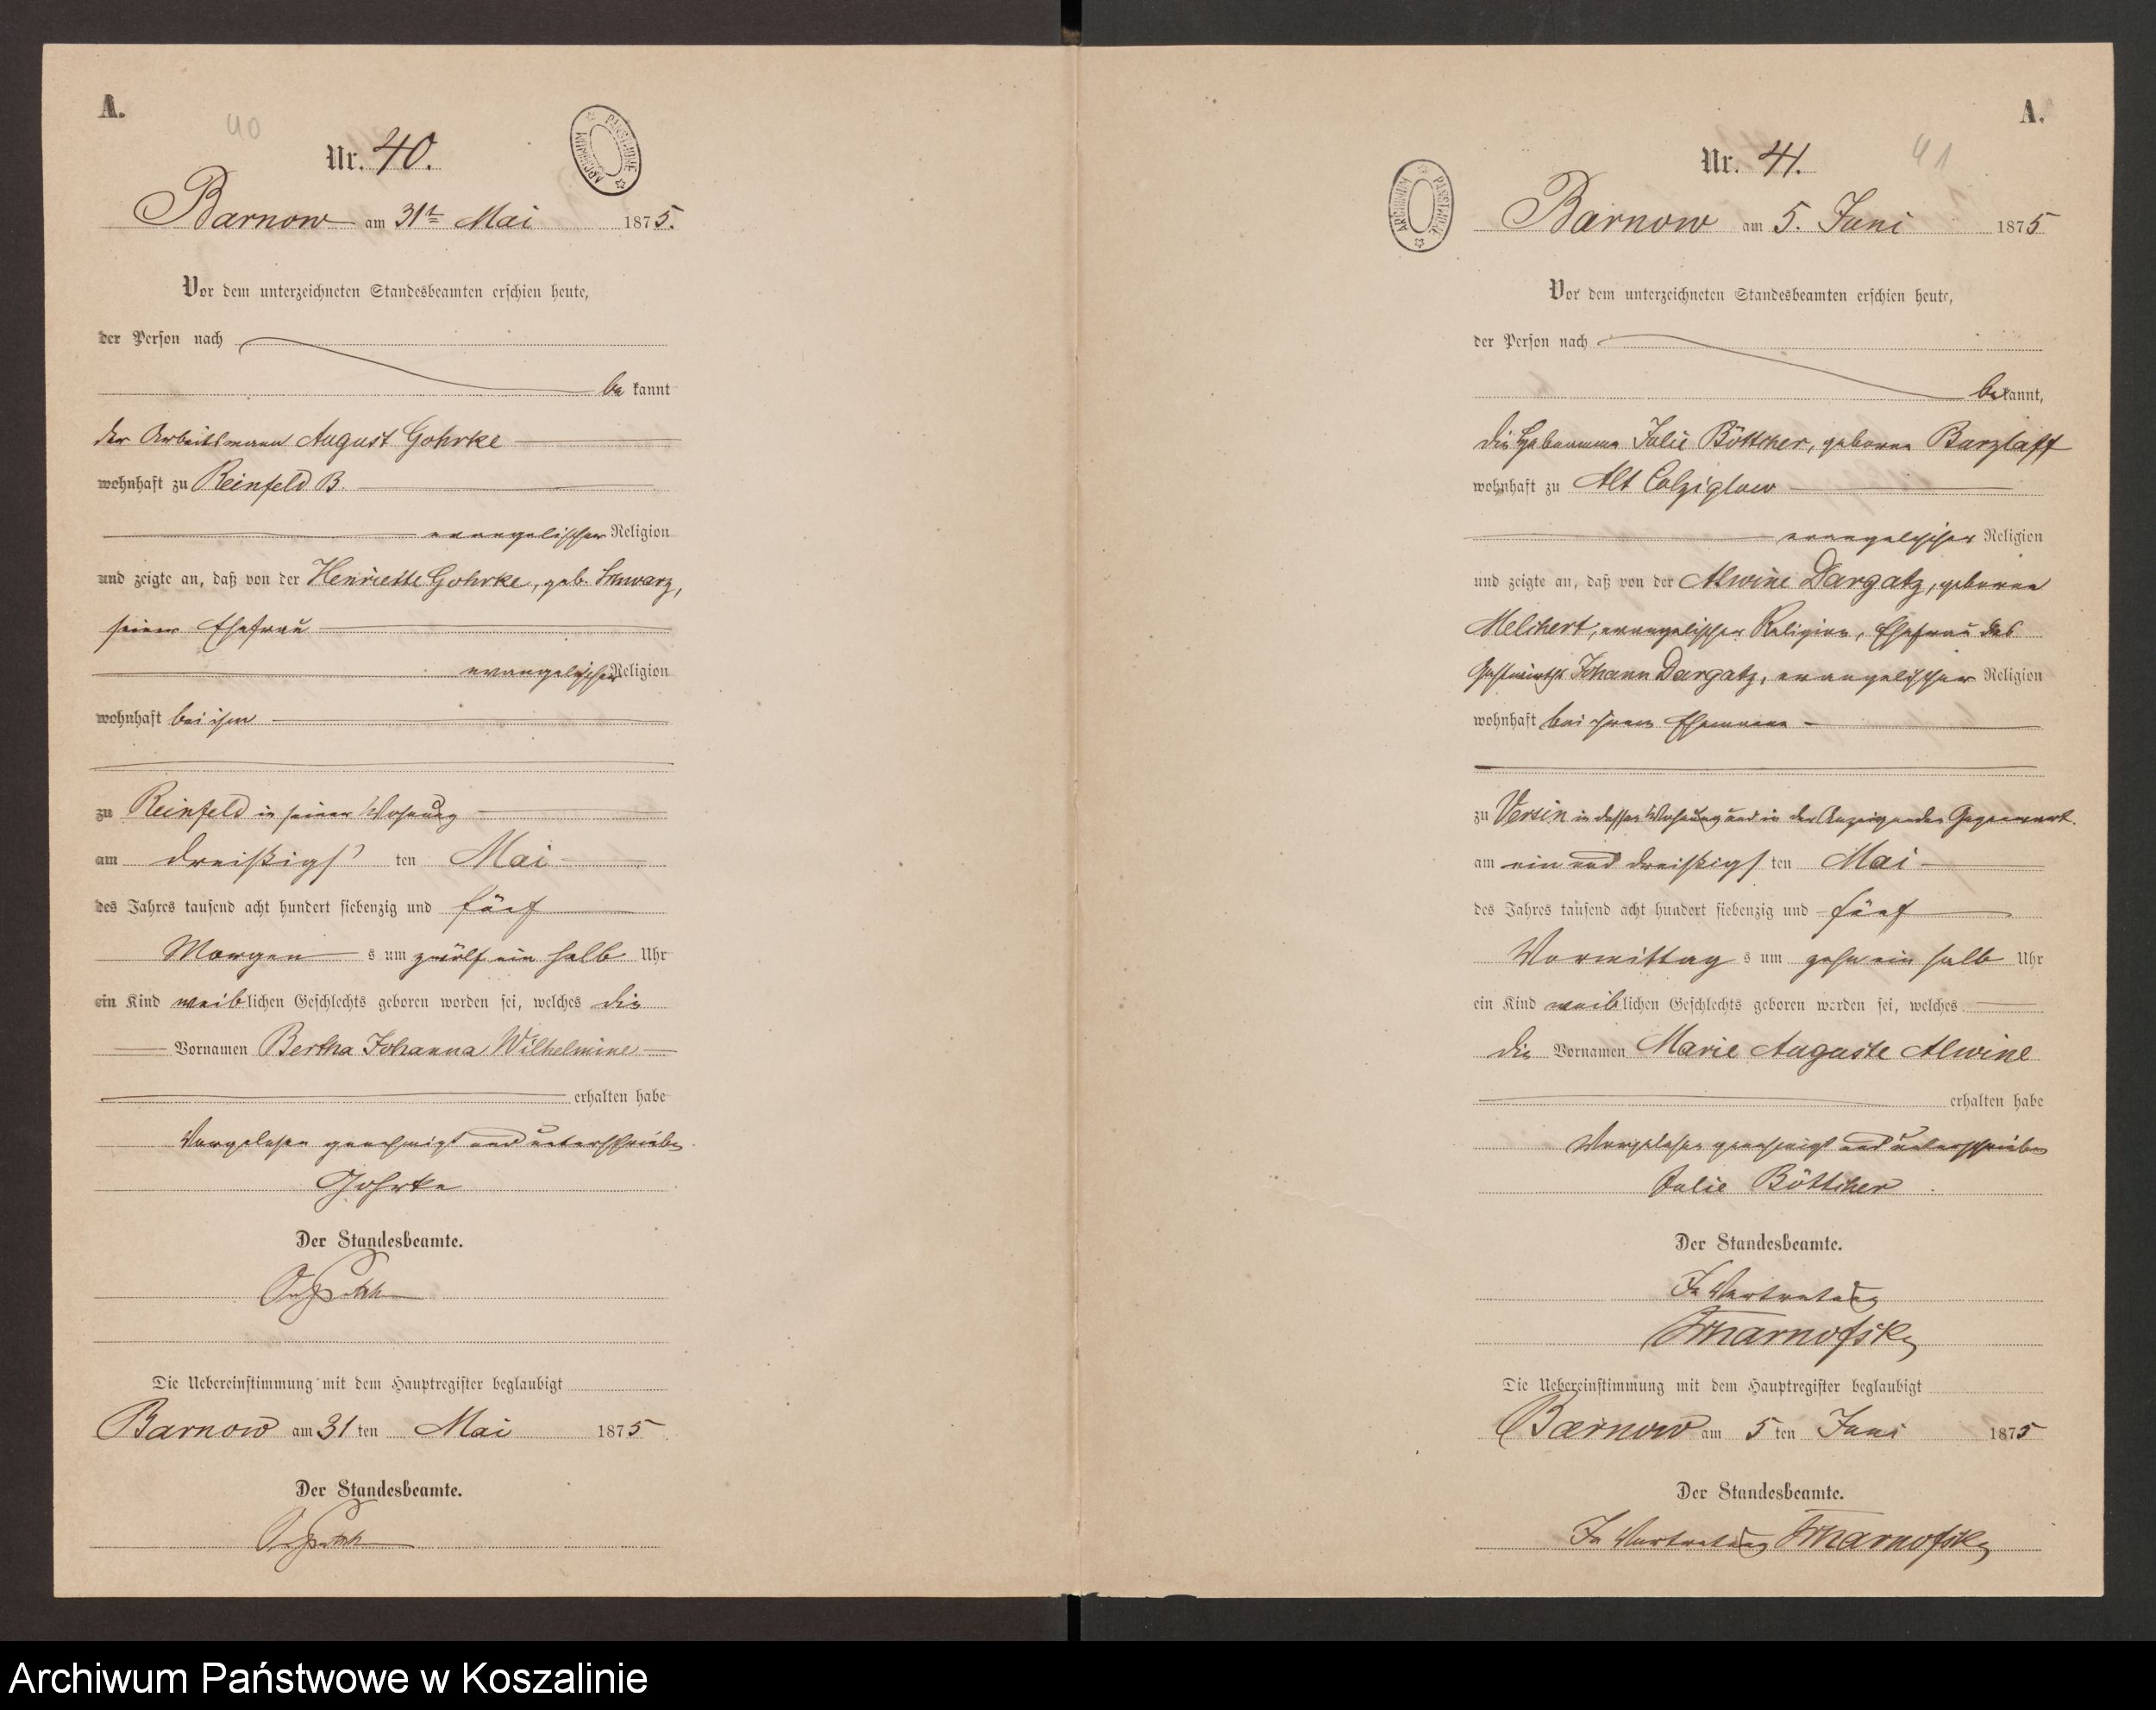 A.
40
Nr. 40.
ARCHIWUM PAŃSTWOWE
Barnow am 31t Mai 1875.
Vor dem unterzeichneten Standesbeamten erschien heute,
der Person nach
bekannt
der Arbeitsmann August Gohrke
wohnhaft zu Reinfeld B.
evangelischer Religion
und zeigte an, daß von der Henriette Gohrke, geb. Schwarz,
seiner Ehefrau
evangelischer Religion
wohnhaft bei ihm
zu Reinfeld in seiner Wohnung
am dreißigsten Mai
des Jahres tausend acht hundert siebenzig und fünf
Morgens um zwölf ein halb Uhr
ein Kind weiblichen Geschlechts geboren worden sei, welches die
Vornamen Bertha Johanna Wilhelmine
erhalten habe
Vorgelesen genehmigt und unterschrieben
Gohrke
Der Standesbeamte.
Die Uebereinstimmung mit dem Hauptregister beglaubigt
Barnow am 31 ten Mai 1875
Der Standesbeamte.
A.
41
Nr. 41.
ARCHIWUM PAŃSTWOWE
Barnow am 5. Juni 1875
Vor dem unterzeichneten Standesbeamten erschien heute,
der Person nach
bekannt,
die Hebamme Julie Böttcher, geborne Burzlaff
wohnhaft zu Alt Colziglow
evangelischer Religion
und zeigte an, daß von der Alwine Dargatz, geborne
Melchert, evangelischer Religion, Ehefrau des
Gastwirths Johann Dargatz, evangelischer Religion
wohnhaft bei ihrem Ehemanne
zu Versin in dessen Wohnung und in der Anzeigenden Gegenwart
am ein und dreißigsten Mai
des Jahres tausend acht hundert siebenzig und fünf
Vormittags um zehn ein halb Uhr
ein Kind weiblichen Geschlechts geboren worden sei, welches
die Vornamen Marie Auguste Alwine
erhalten habe
Vorgelesen genehmigt und unterschrieben
Julie Böttcher
Der Standesbeamte.
In Vertretung
Die Uebereinstimmung mit dem Hauptregister beglaubigt
Barnow am 5 ten Juni 1875
Der Standesbeamte.
In Vertretung
Archiwum Państwowe w Koszalinie